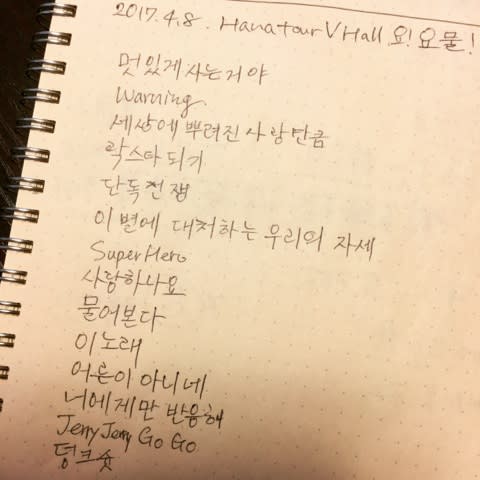 2017.4.8. Hanatour V Hall 요! 요물!
멋있게 사는거야
Warning
세상에 뿌려진 사랑만큼
락스타 되기
단독전쟁
이별에 대처하는 우리의 자세
SuperHero
사랑하나요
물어본다
이 노래
어른이 아니네
너에게만 반응해
Jerry Jerry Go Go
덩크슛